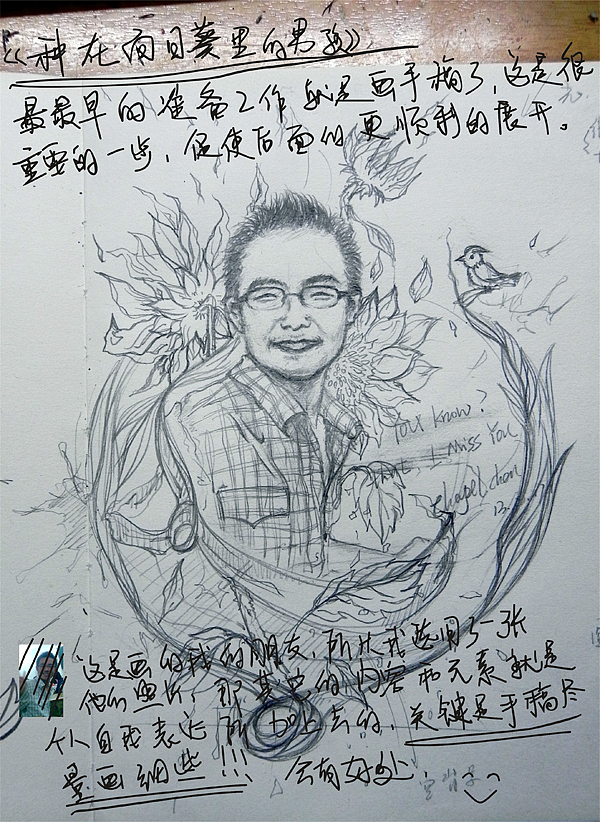 《种在向日葵里的男孩》
最最早的准备工作就是画手稿了，这是很
重要的一步，促使后面的更顺利的展开。
You know?
that I miss you
这是画的我的朋友，所以我选用了一张
他的照片，那其它的内容和元素就是
个人自我表达所加上去的，关键是手稿尽
量画细些!!! 会有好处